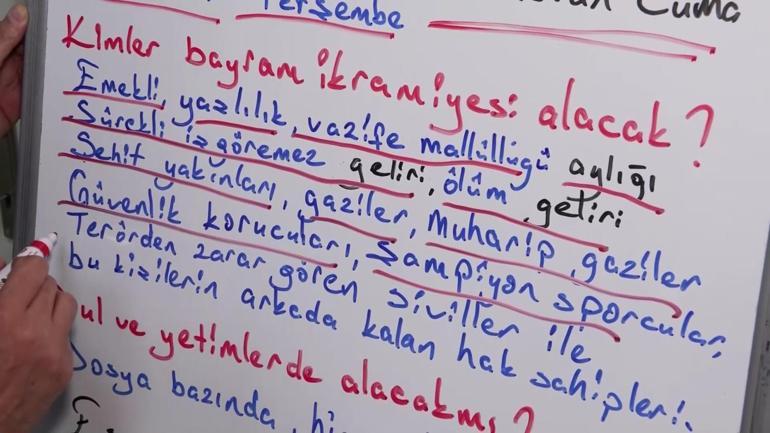 Perşembe Cuma
Kimler bayram ikramiyesi alacak?
Emekli, yazlılık, vazife mallüllügü aylığı
Sürekli iş göremez geliri, ölüm geliri
Şehit yakınları, gaziler, Muharip gaziler
Güvenlik korucuları, Şampiyon sporcular,
Terörden zarar gören siviller ile
bu kizilerin arkada kalan hak sahipleri.
ve yetimlerde alacakmı?
Dosya bazında,